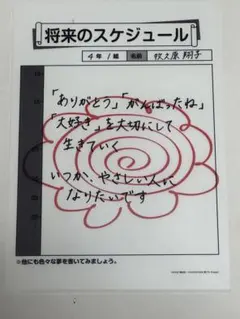 将来のスケジュール
4年 1組 名前 牧久原 翔子
「ありがとう」「がんばったね」
「大好き」を大切にして
生きていく
いつか、やさしい人に
なりたいです
※他にも色々な夢を書いてみましょう。